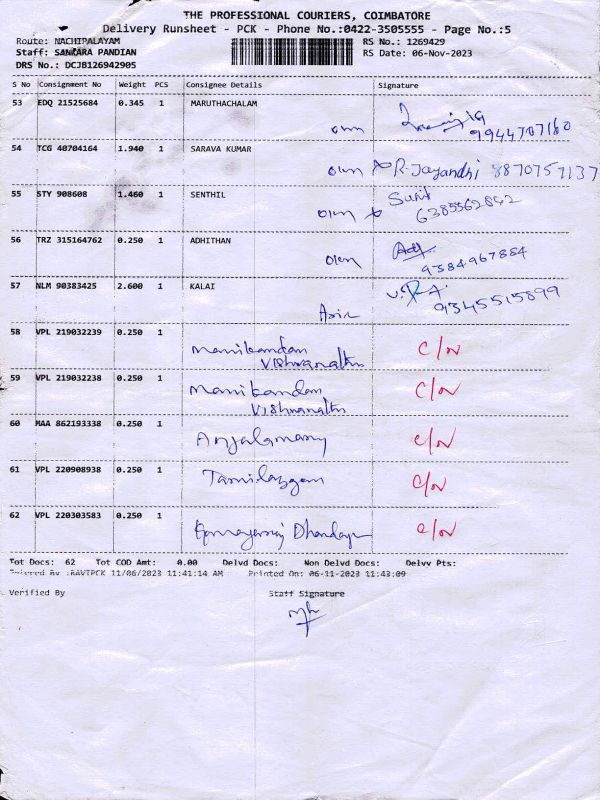 THE PROFESSIONAL COURIERS, COIMBATORE
Delivery Runsheet - PCK - Phone No.:0422-3505555 - Page No.:5
Route: NACHIPALAYAM RS No.: 1269429
Staff: SANKARA PANDIAN RS Date: 06-Nov-2023
DRS No.: DCJB126942905
S No Consignment No Weight PCS Consignee Details Signature
53 EDQ 21525684 0.345 1 MARUTHACHALAM
own 9944707160
54 TCG 40704164 1.940 1 SARAVA KUMAR
own R.Jayandhi 8870757137
55 STY 908608 1.460 1 SENTHIL
own 6385562842
56 TRZ 315164762 0.250 1 ADHITHAN
own 9384967884
57 NLM 90383425 2.600 1 KALAI
9345515899
58 VPL 219032239 0.250 1
Manikandan C/N
Vishwanathn
59 VPL 219032238 0.250 1
Manikandan C/N
Vishwanathn
60 MAA 862193338 0.250 1
Anjalamany C/N
61 VPL 220908938 0.250 1
Tamilazgan C/N
62 VPL 220303583 0.250 1
C/N
Tot Docs: 62 Tot COD Amt: 0.00 Delvd Docs: Non Delvd Docs: Delvv Pts:
Entered By :RAVIPCK 11/06/2023 11:41:14 AM Printed On: 06-11-2023 11:43:09
Verified By Staff Signature